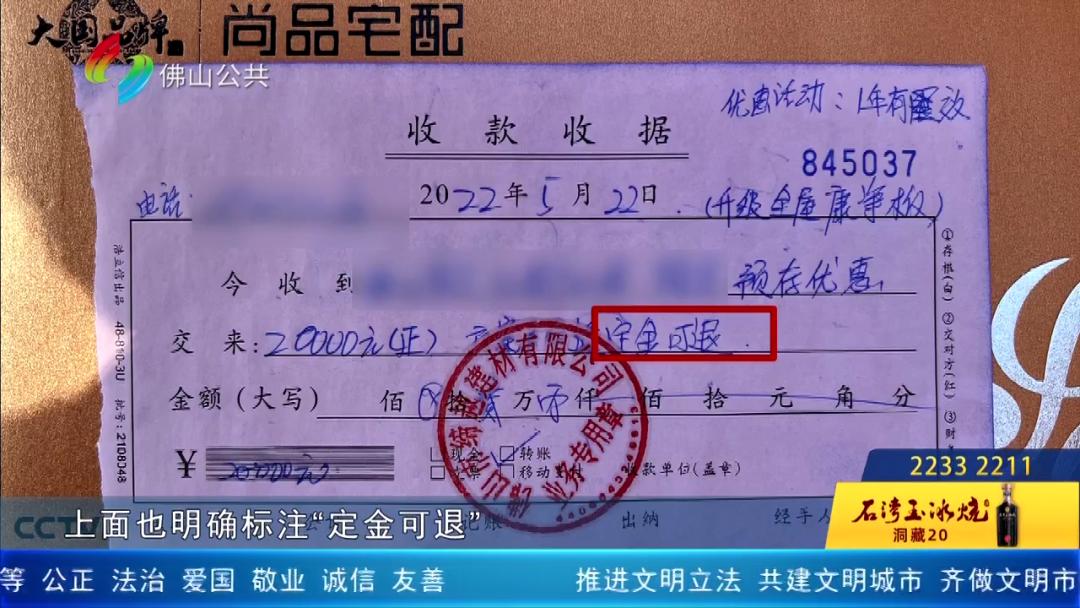 大国品牌 尚品宅配
佛山公共
优惠活动：1年有效
收款收据
845037
电话
2022年5月22日.(升级全屋康净板)
今收到 预存优惠
交来:20000元(正) 定金可退.
金额(大写) 佰 拾 万 仟 佰 拾 元 角 分
¥ 20000元
现金 转账
移动支付 收款单位(盖章)
建材有限公司
业务专用章
浩立信出品 48-810-3U 批号:2108048
①存根(白) ②交对方(红) ③财
出纳 经手人
CCTV
上面也明确标注“定金可退”
2233 2211
石湾玉冰烧
洞藏20
等 公正 法治 爱国 敬业 诚信 友善 推进文明立法 共建文明城市 齐做文明市